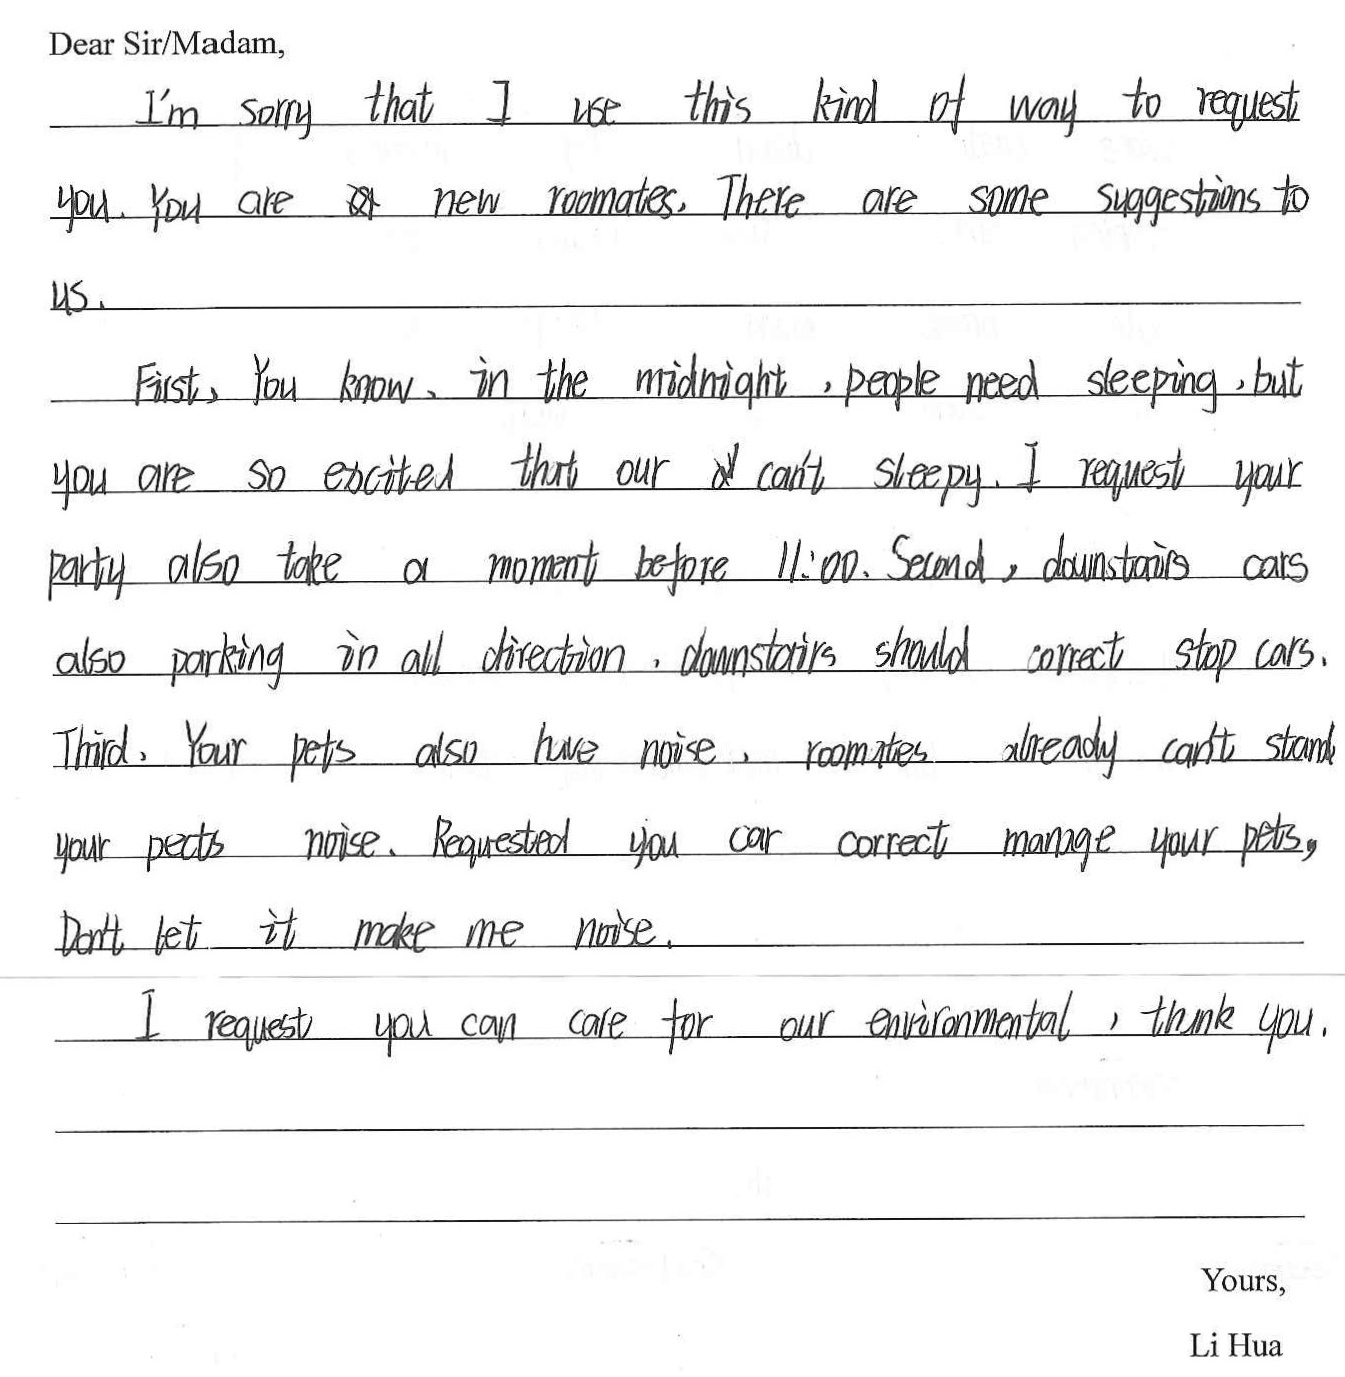 Dear Sir/Madam,
I'm sorry that I use this kind of way to request
you. You are new roomates. There are some suggestions to
us.
First, You know, in the midnight, people need sleeping, but
you are so excited that our can't sleepy. I request your
party also take a moment before 11:00. Second, downstairs cars
also parking in all direction, downstairs should correct stop cars.
Third, Your pets also have noise, roomates already can't stand
your pects noise. Requested you car correct manage your pets,
Don't let it make me noise.
I request you can care for our environmental, thank you.
Yours,
Li Hua